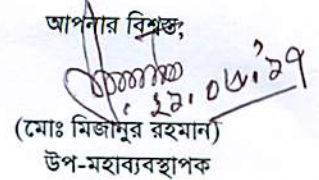 আপনার বিশ্বস্ত,
(মোঃ মিজানুর রহমান)
উপ-মহাব্যবস্থাপক